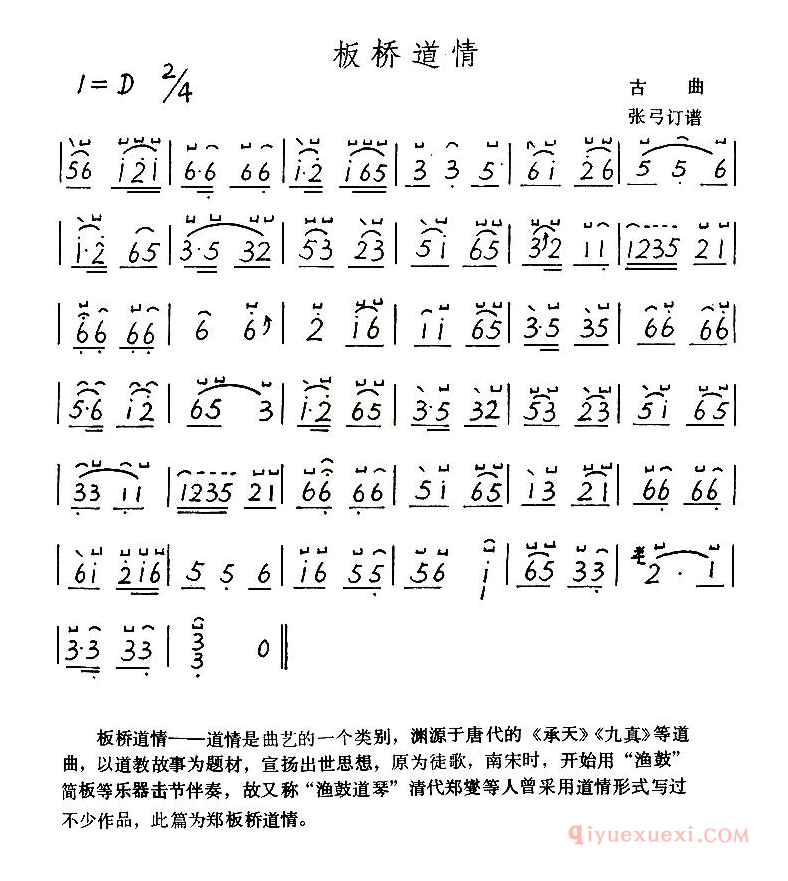 板桥道情
1=D 2/4
古 曲
张弓订谱
56 i2i | 6·6 66 | i·2 i65 | 3 3 5 | 6i 26 | 5 5 6 |
i·2 65 | 3·5 32 | 53 23 | 5i 65 | 32 11 | 1235 21 |
66 66 | 6 6 | 2 i6 | ii 65 | 3·5 35 | 66 66 |
5·6 i2 | 65 3 | i·2 65 | 3·5 32 | 53 23 | 5i 65 |
33 11 | 1235 21 | 66 66 | 5i 65 | 13 21 | 66 66 |
6i 2i6 | 5 5 6 | i6 55 | 56 i | 65 33 | 2 · 1 |
3·3 33 | 3 3 0 ‖
板桥道情——道情是曲艺的一个类别，渊源于唐代的《承天》《九真》等道
曲，以道教故事为题材，宣扬出世思想，原为徒歌，南宋时，开始用“渔鼓”
简板等乐器击节伴奏，故又称“渔鼓道琴”清代郑燮等人曾采用道情形式写过
不少作品，此篇为郑板桥道情。
qiyuexuexi.COM